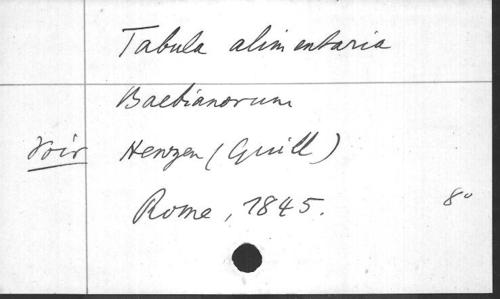 Tabula alimentaria
Baebianorum
Voir Henzen (Guill)
Rome, 1845. 8°